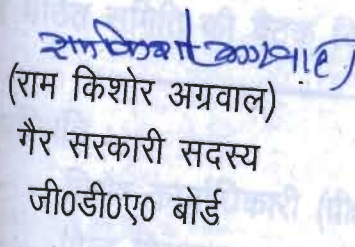 (राम किशोर अग्रवाल)
गैर सरकारी सदस्य
जी0डी0ए0 बोर्ड